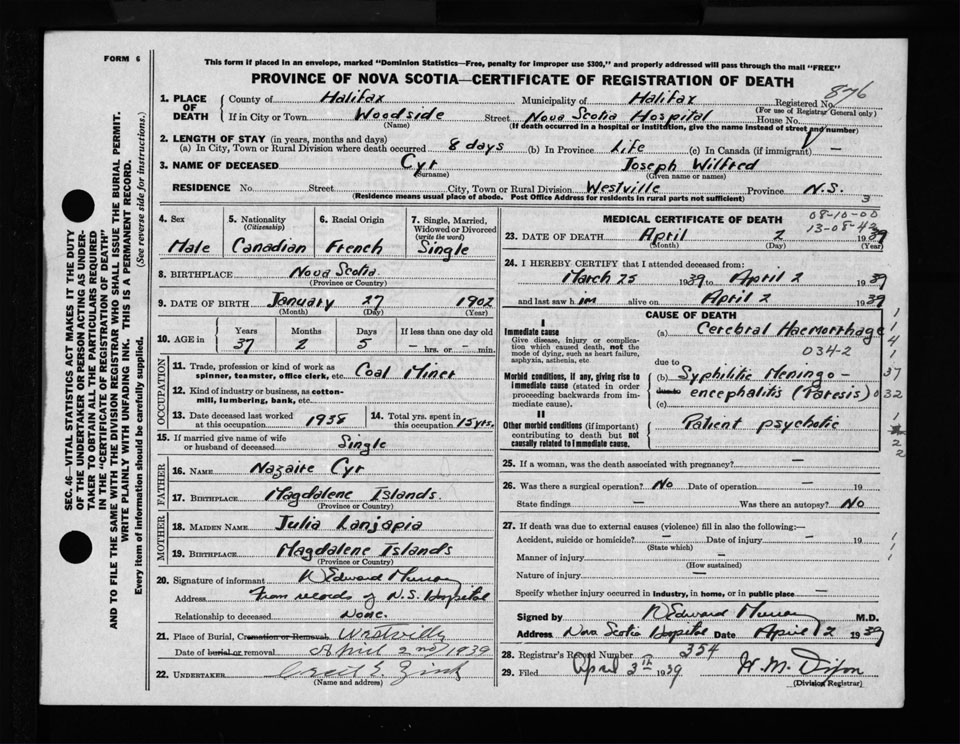 FORM 6
This form if placed in an envelope, marked "Dominion Statistics—Free, penalty for improper use $300," and properly addressed will pass through the mail "FREE"
PROVINCE OF NOVA SCOTIA—CERTIFICATE OF REGISTRATION OF DEATH
876
1. PLACE OF DEATH County of Halifax Municipality of Halifax Registered No.
(For use of Registrar General only)
If in City or Town Woodside Street Nova Scotia Hospital House No.
(Name) (If death occurred in a hospital or institution, give the name instead of street and number)
2. LENGTH OF STAY (in years, months and days)
(a) In City, Town or Rural Division where death occurred 8 days (b) In Province Life (c) In Canada (if immigrant) —
3. NAME OF DECEASED Cyr Joseph Wilfred
(Surname) (Given name or names)
RESIDENCE No. Street City, Town or Rural Division Westville Province N.S.
(Residence means usual place of abode. Post Office Address for residents in rural parts not sufficient) 3
SEC. 46—VITAL STATISTICS ACT MAKES IT THE DUTY
OF THE UNDERTAKER OR PERSON ACTING AS UNDER-
TAKER TO OBTAIN ALL THE PARTICULARS REQUIRED
IN THE "CERTIFICATE OF REGISTRATION OF DEATH"
AND TO FILE THE SAME WITH THE DIVISION REGISTRAR WHO SHALL ISSUE THE BURIAL PERMIT.
WRITE PLAINLY WITH UNFADING INK. THIS IS A PERMANENT RECORD.
Every item of information should be carefully supplied. (See reverse side for instructions.)
4. Sex 5. Nationality (Citizenship) 6. Racial Origin 7. Single, Married, Widowed or Divorced (write the word)
Male Canadian French Single
8. BIRTHPLACE Nova Scotia
(Province or Country)
9. DATE OF BIRTH January 27 1902
(Month) (Day) (Year)
10. AGE in Years Months Days If less than one day old
37 2 5 — hrs. or — min.
OCCUPATION
11. Trade, profession or kind of work as spinner, teamster, office clerk, etc. Coal Miner
12. Kind of industry or business, as cotton-mill, lumbering, bank, etc.
13. Date deceased last worked at this occupation 1938 14. Total yrs. spent in this occupation 15 yrs.
15. If married give name of wife or husband of deceased Single
FATHER
16. NAME Nazaire Cyr
17. BIRTHPLACE Magdalene Islands.
(Province or Country)
MOTHER
18. MAIDEN NAME Julia Lanjapia
19. BIRTHPLACE Magdalene Islands
(Province or Country)
20. Signature of informant Edward Murray
Address from records of N.S. Hospital
Relationship to deceased None.
21. Place of Burial, Cremation or Removal, Westville
Date of burial or removal April 2nd/1939
22. UNDERTAKER Cecil E.
(Name and address)
MEDICAL CERTIFICATE OF DEATH
08-10-00
13-08-42
23. DATE OF DEATH April 2 1939
(Month) (Day) (Year)
24. I HEREBY CERTIFY that I attended deceased from:
March 25 1939 to April 2 1939
and last saw him alive on April 2 1939
CAUSE OF DEATH
I
Immediate cause
Give disease, injury or complication which caused death, not the mode of dying, such as heart failure, asphyxia, asthenia, etc.
(a) Cerebral Haemorrhage
034-2
due to
Morbid conditions, if any, giving rise to immediate cause (stated in order proceeding backwards from immediate cause).
(b) Syphilitic Meningo-
due to encephalitis (Paresis) 032
(c)
II
Other morbid conditions (if important) contributing to death but not causally related to immediate cause.
Patient psychotic
1
1
4
1
37
1
2
2
25. If a woman, was the death associated with pregnancy? —
26. Was there a surgical operation? No Date of operation — 19
State findings — Was there an autopsy? No
27. If death was due to external causes (violence) fill in also the following:—
Accident, suicide or homicide? — Date of injury — 19
(State which)
Manner of injury —
(How sustained)
Nature of injury —
Specify whether injury occurred in industry, in home, or in public place —
Signed by Edward Murray M.D.
Address Nova Scotia Hospital Date April 2 1939
28. Registrar's Record Number 354
29. Filed April 3th 1939 W. M. Dixon
(Division Registrar)